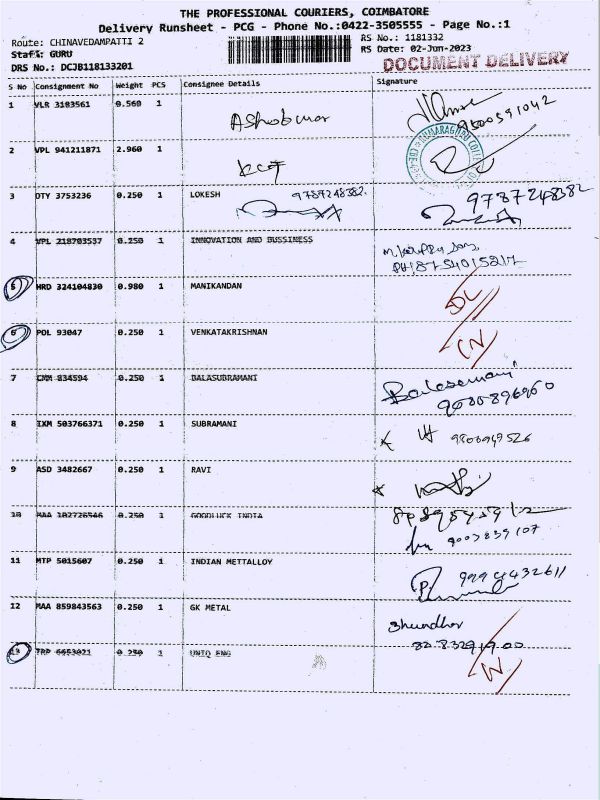 THE PROFESSIONAL COURIERS, COIMBATORE
Delivery Runsheet - PCG - Phone No.:0422-3505555 - Page No.:1
Route: CHINAVEDAMPATTI 2
RS No.: 1181332
Staff: GURU
RS Date: 02-Jun-2023
DRS No.: DCJB118133201
DOCUMENT DELIVERY
S No Consignment No Weight PCS Consignee Details Signature
1 VLR 3183561 0.560 1
9500591042
2 VPL 941211871 2.960 1 KCT
3 DTY 3753236 0.250 1 LOKESH 9787248382 9787248382
4 VPL 218703537 0.250 1 INNOVATION AND BUSSINESS
5 HRD 324104830 0.980 1 MANIKANDAN DL
6 POL 93047 0.250 1 VENKATAKRISHNAN
7 CMM 834594 0.250 1 BALASUBRAMANI Balasemani
8 IXM 503766371 0.250 1 SUBRAMANI
9 ASD 3482667 0.250 1 RAVI
10 MAA 182726546 0.250 1 GOODLUCK INDIA
9003839107
11 MTP 5015607 0.250 1 INDIAN METTALLOY 9994432611
12 MAA 859843563 0.250 1 GK METAL Shundhar
13 TRP 6653021 0.250 1 UNIQ ENG